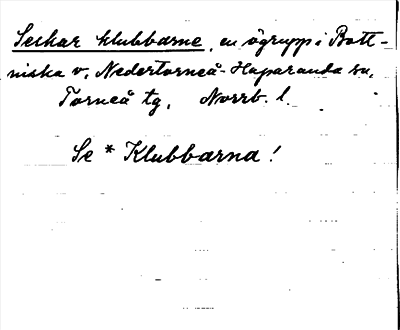 Seskar klubbarne, en ögrupp i Bott-
niska v, Nedertorneå-Haparanda sn,
Torneå tg, Norrb. l.
Se * Klubbarna!